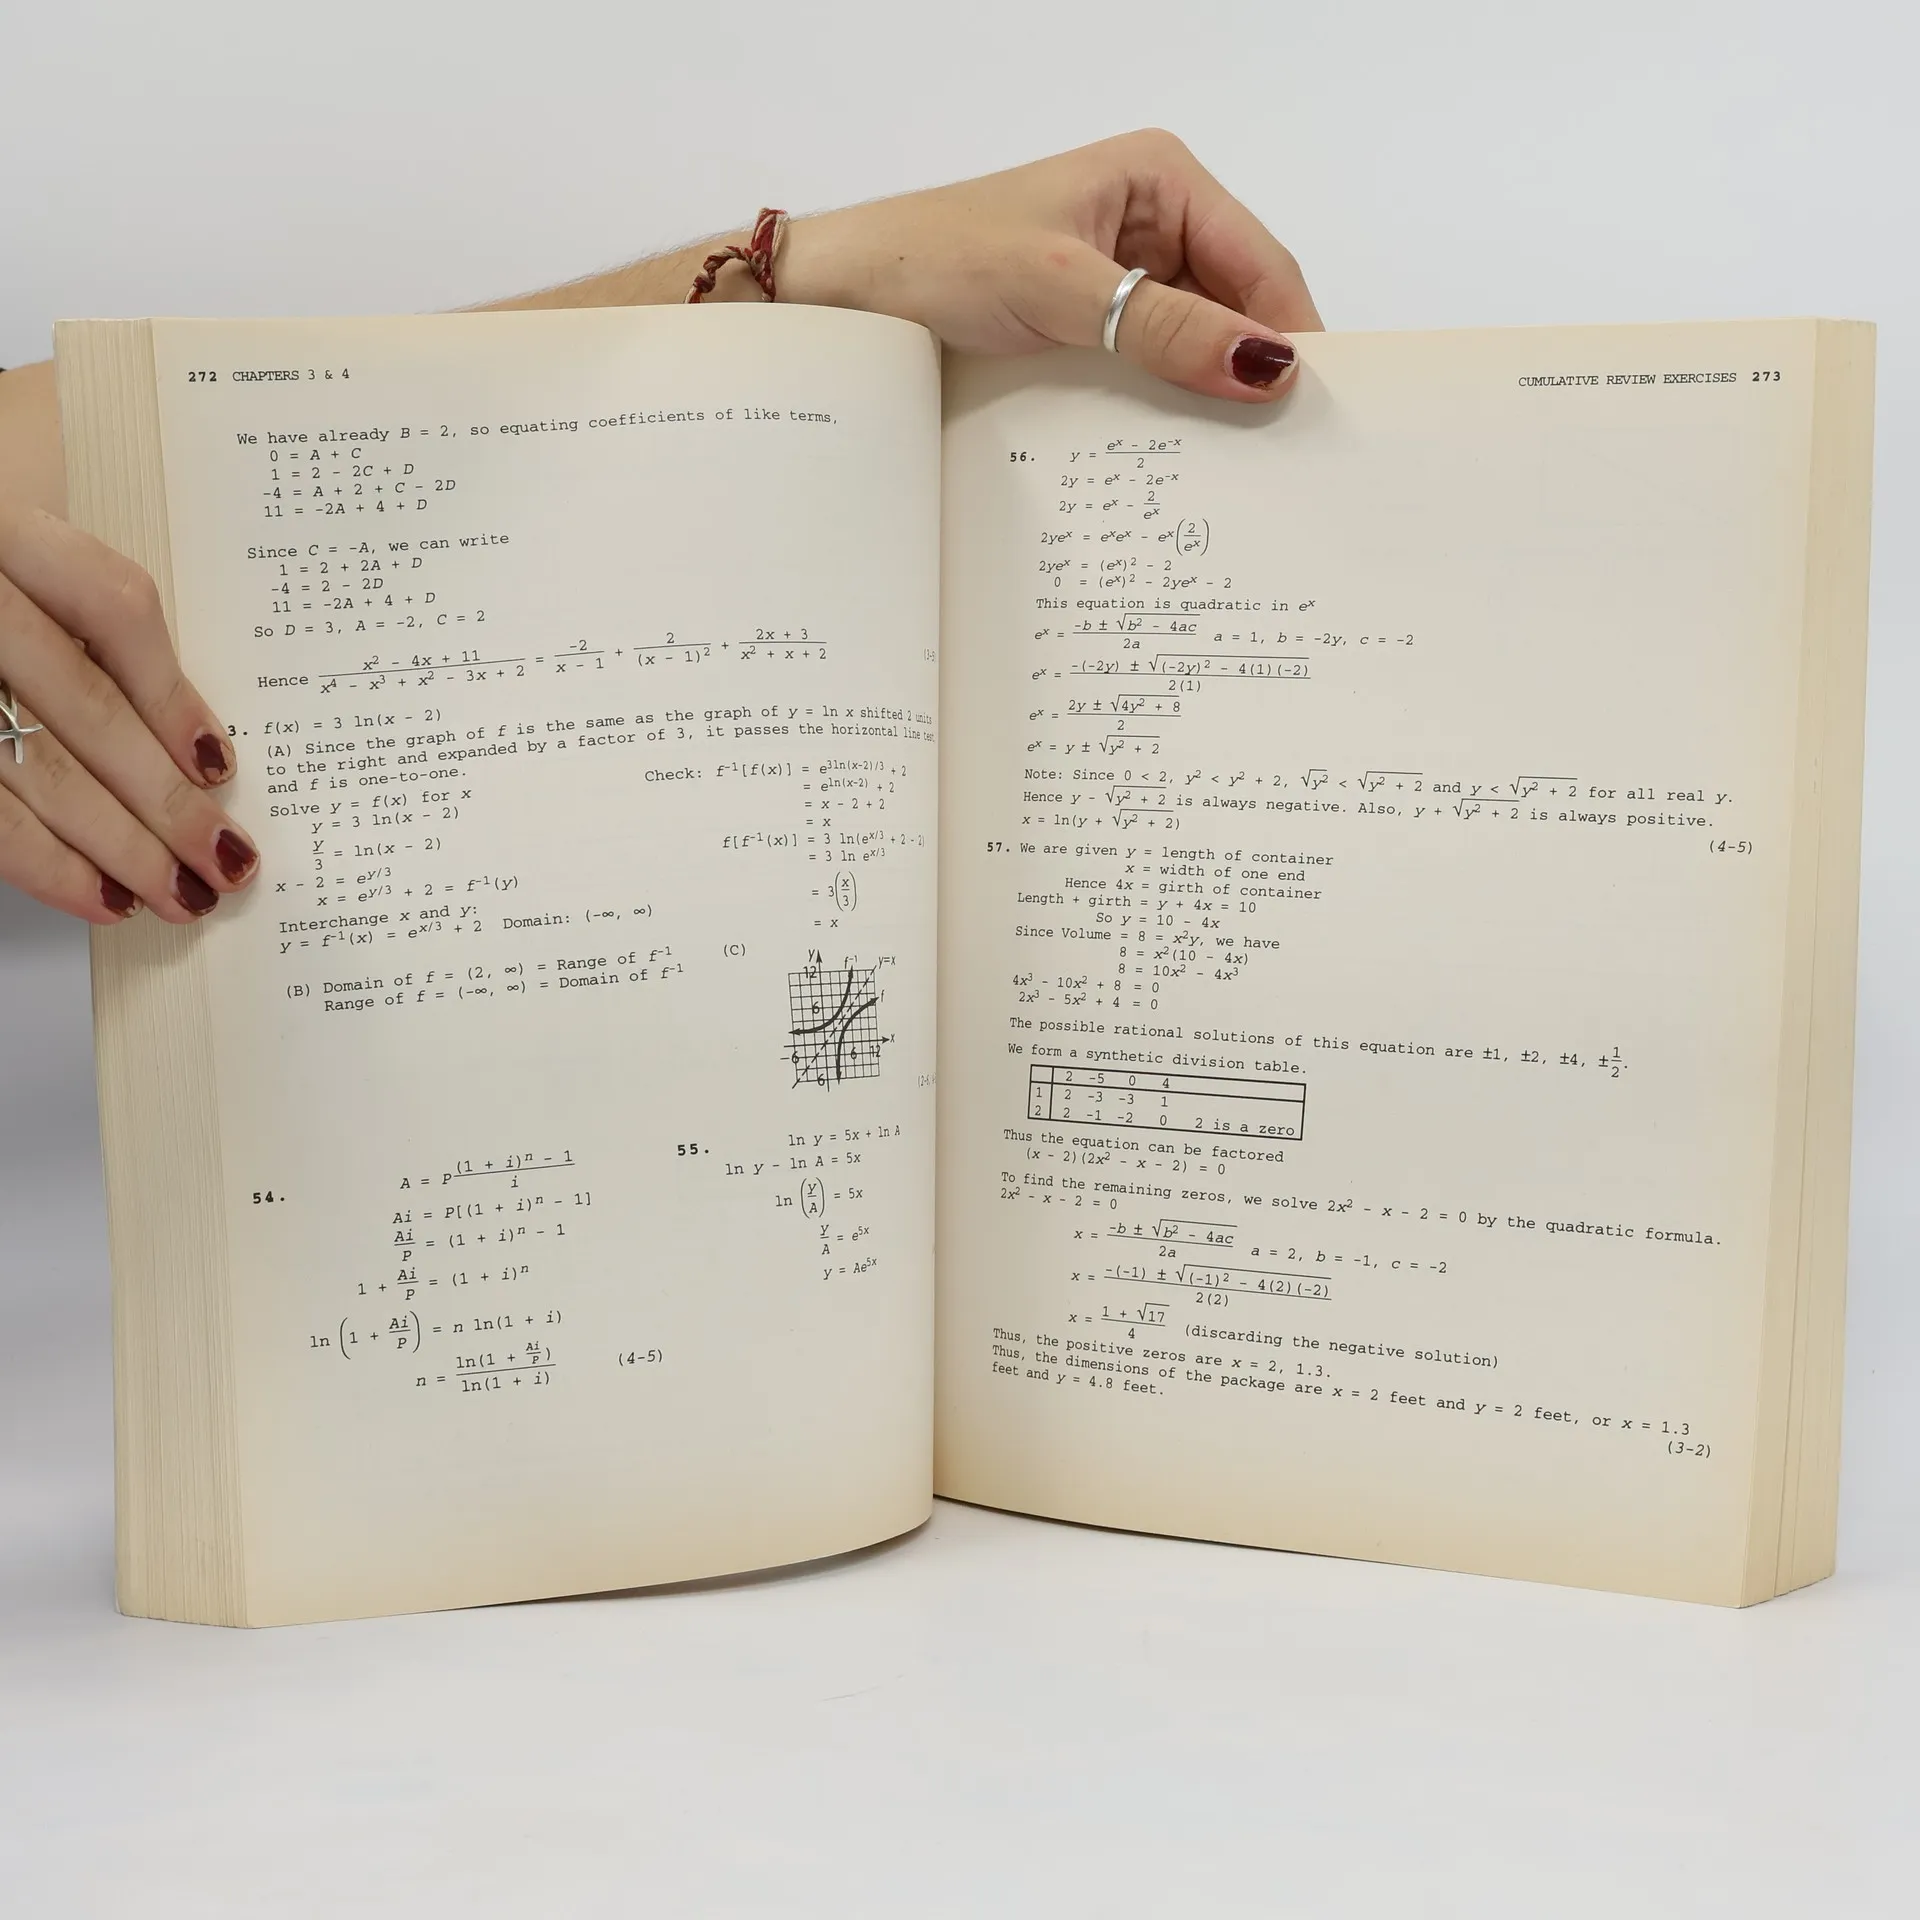 272 CHAPTERS 3 & 4
We have already B = 2, so equating coefficients of like terms,
0 = A + C
1 = 2 - 2C + D
-4 = A + 2 + C - 2D
11 = -2A + 4 + D
Since C = -A, we can write
1 = 2 + 2A + D
-4 = 2 - 2D
11 = -2A + 4 + D
So D = 3, A = -2, C = 2
Hence (x² - 4x + 11)/(x⁴ - x³ + x² - 3x + 2) = -2/(x - 1) + 2/(x - 1)² + (2x + 3)/(x² + x + 2)
3. f(x) = 3 ln(x - 2)
(A) Since the graph of f is the same as the graph of y = ln x shifted 2 units
to the right and expanded by a factor of 3, it passes the horizontal line test,
and f is one-to-one.
Solve y = f(x) for x
y = 3 ln(x - 2)
y/3 = ln(x - 2)
x - 2 = e^(y/3)
x = e^(y/3) + 2 = f⁻¹(y)
Interchange x and y:
y = f⁻¹(x) = e^(x/3) + 2 Domain: (-∞, ∞)
Check: f⁻¹[f(x)] = e^(3ln(x-2)/3) + 2
= e^(ln(x-2)) + 2
= x - 2 + 2
= x
f[f⁻¹(x)] = 3 ln(e^(x/3) + 2 - 2)
= 3 ln e^(x/3)
= 3(x/3)
= x
(B) Domain of f = (2, ∞) = Range of f⁻¹
Range of f = (-∞, ∞) = Domain of f⁻¹
(C)
y f⁻¹ y=x
12
f
6
x
-6 6 12
6
54. A = P((1 + i)ⁿ - 1)/i
Ai = P[(1 + i)ⁿ - 1]
Ai/P = (1 + i)ⁿ - 1
1 + Ai/P = (1 + i)ⁿ
ln(1 + Ai/P) = n ln(1 + i)
n = ln(1 + Ai/P)/ln(1 + i) (4-5)
55. ln y = 5x + ln A
ln y - ln A = 5x
ln(y/A) = 5x
y/A = e^(5x)
y = Ae^(5x)
CUMULATIVE REVIEW EXERCISES 273
56. y = (eˣ - 2e⁻ˣ)/2
2y = eˣ - 2e⁻ˣ
2y = eˣ - 2/eˣ
2yeˣ = eˣeˣ - eˣ(2/eˣ)
2yeˣ = (eˣ)² - 2
0 = (eˣ)² - 2yeˣ - 2
This equation is quadratic in eˣ
eˣ = (-b ± √(b² - 4ac))/2a a = 1, b = -2y, c = -2
eˣ = (-(-2y) ± √((-2y)² - 4(1)(-2)))/2(1)
eˣ = (2y ± √(4y² + 8))/2
eˣ = y ± √(y² + 2)
Note: Since 0 < 2, y² < y² + 2, √(y²) < √(y² + 2) and y < √(y² + 2) for all real y.
Hence y - √(y² + 2) is always negative. Also, y + √(y² + 2) is always positive.
x = ln(y + √(y² + 2))
(4-5)
57. We are given y = length of container
x = width of one end
Hence 4x = girth of container
Length + girth = y + 4x = 10
So y = 10 - 4x
Since Volume = 8 = x²y, we have
8 = x²(10 - 4x)
8 = 10x² - 4x³
4x³ - 10x² + 8 = 0
2x³ - 5x² + 4 = 0
The possible rational solutions of this equation are ±1, ±2, ±4, ±1/2.
We form a synthetic division table.
2 -5 0 4
1 2 -3 -3 1
2 2 -1 -2 0 2 is a zero
Thus the equation can be factored
(x - 2)(2x² - x - 2) = 0
To find the remaining zeros, we solve 2x² - x - 2 = 0 by the quadratic formula.
2x² - x - 2 = 0
x = (-b ± √(b² - 4ac))/2a a = 2, b = -1, c = -2
x = (-(-1) ± √((-1)² - 4(2)(-2)))/2(2)
x = (1 + √17)/4 (discarding the negative solution)
Thus, the positive zeros are x = 2, 1.3.
Thus, the dimensions of the package are x = 2 feet and y = 2 feet, or x = 1.3
feet and y = 4.8 feet.
(3-2)